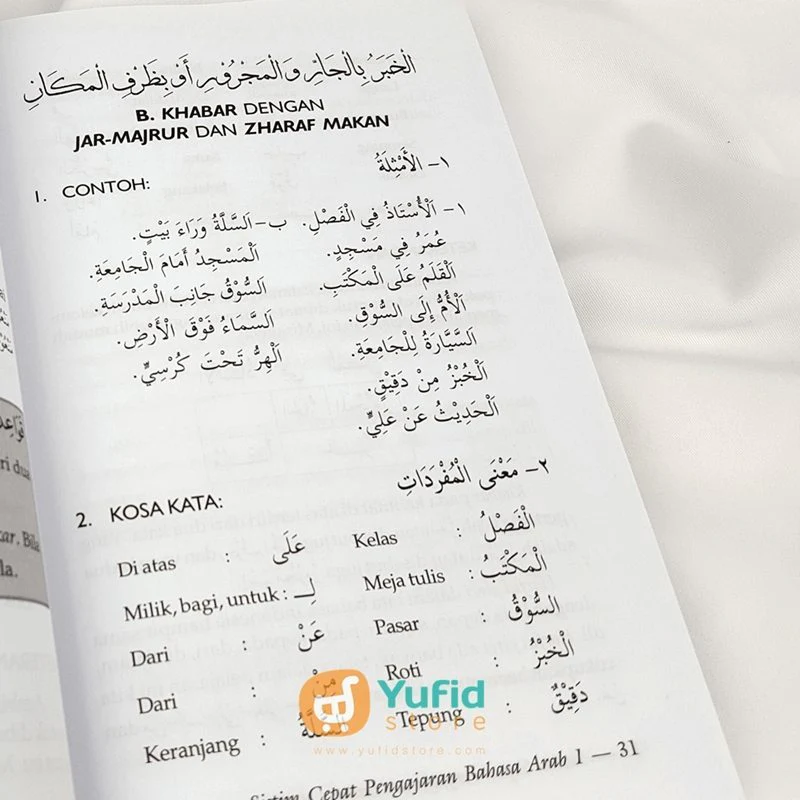 الْخَبَرُ بِالْجَارِ وَالْمَجْرُوْرِ أَوْ بِظَرْفِ الْمَكَانِ
B. KHABAR DENGAN
JAR-MAJRUR DAN ZHARAF MAKAN
1. CONTOH: ١- الأَمْثِلَةُ
١- اَلْأُسْتَاذُ فِي الْفَصْلِ. ب- اَلسَّلَّةُ وَرَاءَ بَيْتٍ.
عُمَرُ فِي مَسْجِدٍ. اَلْمَسْجِدُ أَمَامَ الْجَامِعَةِ.
اَلْقَلَمُ عَلَى الْمَكْتَبِ. اَلسُّوْقُ جَانِبَ الْمَدْرَسَةِ.
اَلْأُمُّ إِلَى السُّوْقِ. اَلسَّمَاءُ فَوْقَ الْأَرْضِ.
اَلسَّيَّارَةُ لِلْجَامِعَةِ. اَلْهِرُّ تَحْتَ كُرْسِيٍّ.
اَلْخُبْزُ مِنْ دَقِيْقٍ.
اَلْحَدِيْثُ عَنْ عَلِيٍّ.
2. KOSA KATA: ٢- مَعْنَى الْمُفْرَدَاتِ
Di atas : عَلَى Kelas : الْفَصْلُ
Milik, bagi, untuk : لِـ Meja tulis : الْمَكْتَبُ
Dari : عَنْ Pasar : السُّوْقُ
Dari : مِنْ Roti : الْخُبْزُ
Keranjang : السَّلَّةُ Tepung : دَقِيْقٌ
Yufid
store
www.yufidstore.com
Sistim Cepat Pengajaran Bahasa Arab 1 — 31
ri dua
car. Bila
la.